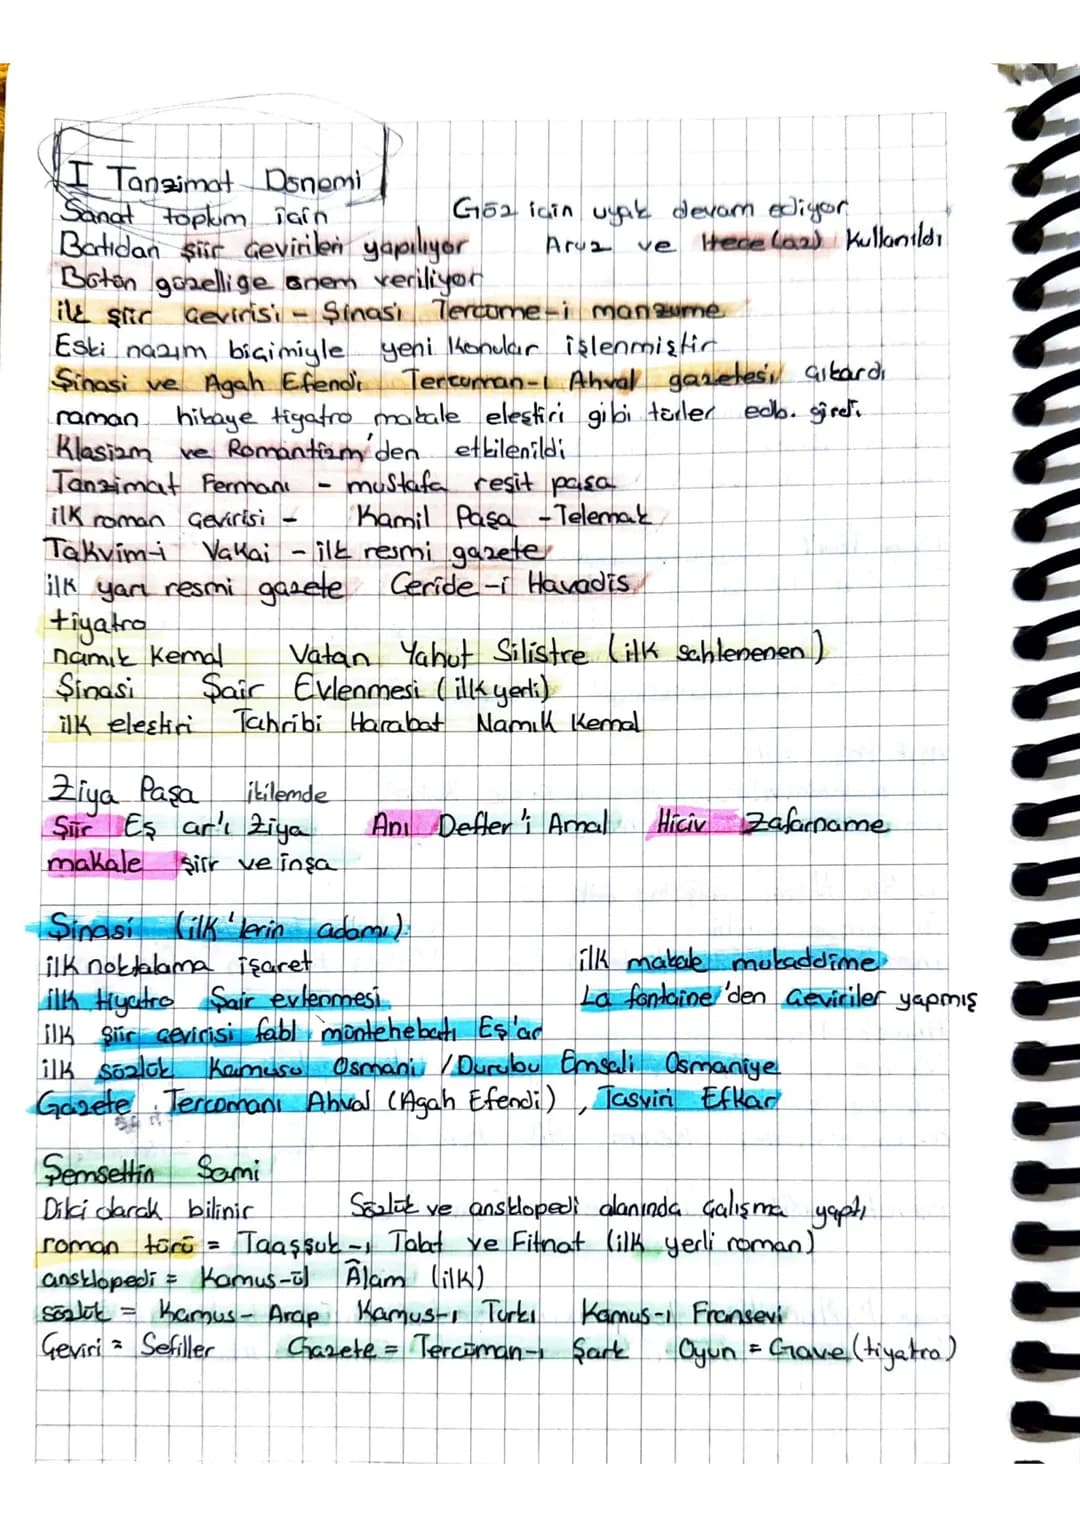 I Tanzimat Dönemi
Sanat toplum için
Göz için uyak devam ediyor
Batıdan şiir çevirileri yapılıyor
Aruz ve Hece (az) Kullanıldı
Bütün güzelliğe önem veriliyor
ilk şiir çevirisi - Şinasi Tercüme-i manzume
Eski nazım biçimiyle yeni konular işlenmiştir
Şinasi ve Agah Efendi Tercüman-ı Ahval gazetesi çıkardı
roman hikaye tiyatro makale eleştiri gibi türler edb. girdi.
Klasizm ve Romantizm'den etkilenildi
Tanzimat Fermanı - mustafa reşit paşa
ilk roman çevirisi - Kamil Paşa - Telemak
Takvim-i Vakai - ilk resmi gazete
ilk yarı resmi gazete Ceride-i Havadis
tiyatro
namık kemal Vatan Yahut Silistre (ilk sahlenenen)
Şinasi Şair Evlenmesi (ilk yerli)
ilk eleştiri Tahribi Harabat Namık Kemal
Ziya Paşa ikilemde
Şiir Eş ar'ı Ziya Anı Defter'i Amal Hiciv Zafarname
makale şiir ve inşa
Şinasi (ilk'lerin adamı)
ilk noktalama işaret
ilk makale mukaddime
ilk tiyatro Şair evlenmesi
La fontaine'den çeviriler yapmış
ilk şiir çevirisi fabl müntehebatı Eş'ar
ilk sözlük Kamusu Osmani / Durubu Emsali Osmaniye
Gazete Tercümanı Ahval (Agah Efendi), Tasviri Efkar
Şemsettin Sami
Dilci olarak bilinir
Sözlük ve ansklopedi alanında çalışma yaptı
roman türü = Taaşşuk-ı Talat ve Fitnat (ilk yerli roman)
ansklopedi = Kamus-ül Âlam (ilk)
sözlük = Kamus-Arap Kamus-ı Turkı Kamus-ı Fransevi
Çeviri = Sefiller Gazete = Tercüman-ı Şark Oyun = Gave (tiyatro)